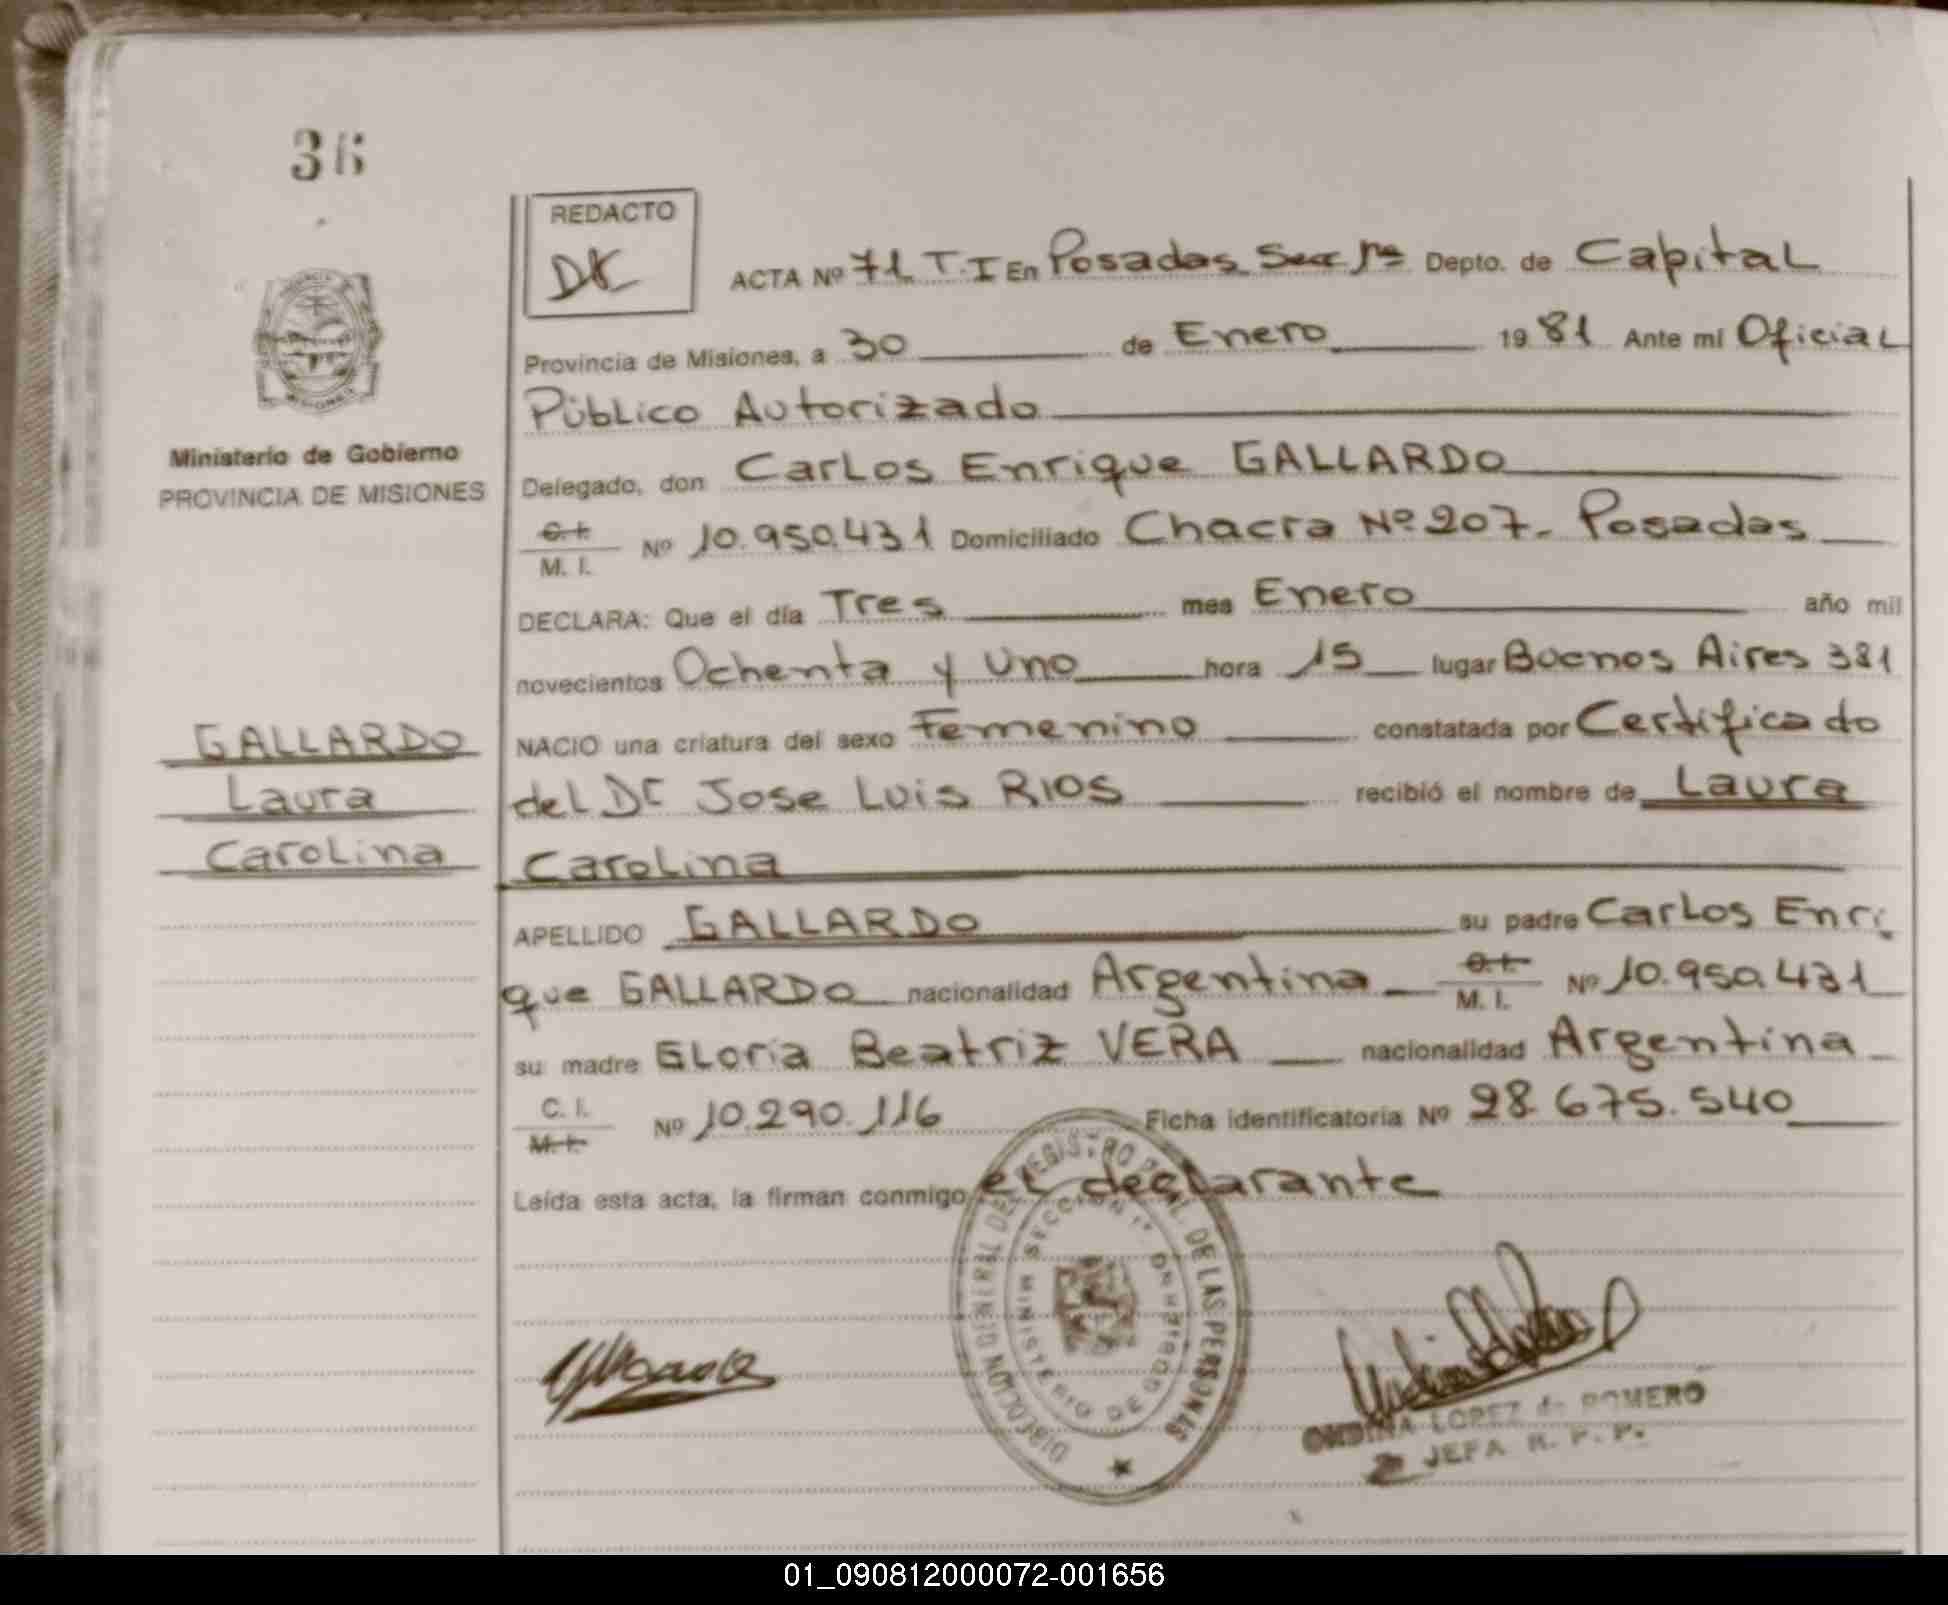 36
REDACTO
DK
ACTA Nº 71 T.I En Posadas Secc 1ª Depto. de Capital
Provincia de Misiones, a 30 de Enero 1981 Ante mí Oficial
Público Autorizado
Ministerio de Gobierno
PROVINCIA DE MISIONES
Delegado, don Carlos Enrique GALLARDO
C.I.
M. I. Nº 10.950.431 Domiciliado Chacra Nº 207. Posadas
DECLARA: Que el día Tres mes Enero año mil
novecientos Ochenta y Uno hora 15 lugar Buenos Aires 381
GALLARDO
Laura
Carolina
NACIO una criatura del sexo Femenino constatada por Certificado
del Dr Jose Luis RIOS recibió el nombre de Laura
Carolina
APELLIDO GALLARDO su padre Carlos Enri
que GALLARDO nacionalidad Argentina C.I.
M. I. Nº 10.950.431
su madre Gloria Beatriz VERA nacionalidad Argentina
C. I.
M. I. Nº 10.290.116 Ficha identificatoria Nº 28.675.540
Leída esta acta, la firman conmigo el declarante
DIRECCION GENERAL DEL REGISTRO PCIAL. DE LAS PERSONAS
SECCION 1ª
MINISTERIO DE GOBIERNO
ONDINA LOPEZ de ROMERO
JEFA R. P. P.
01_090812000072-001656